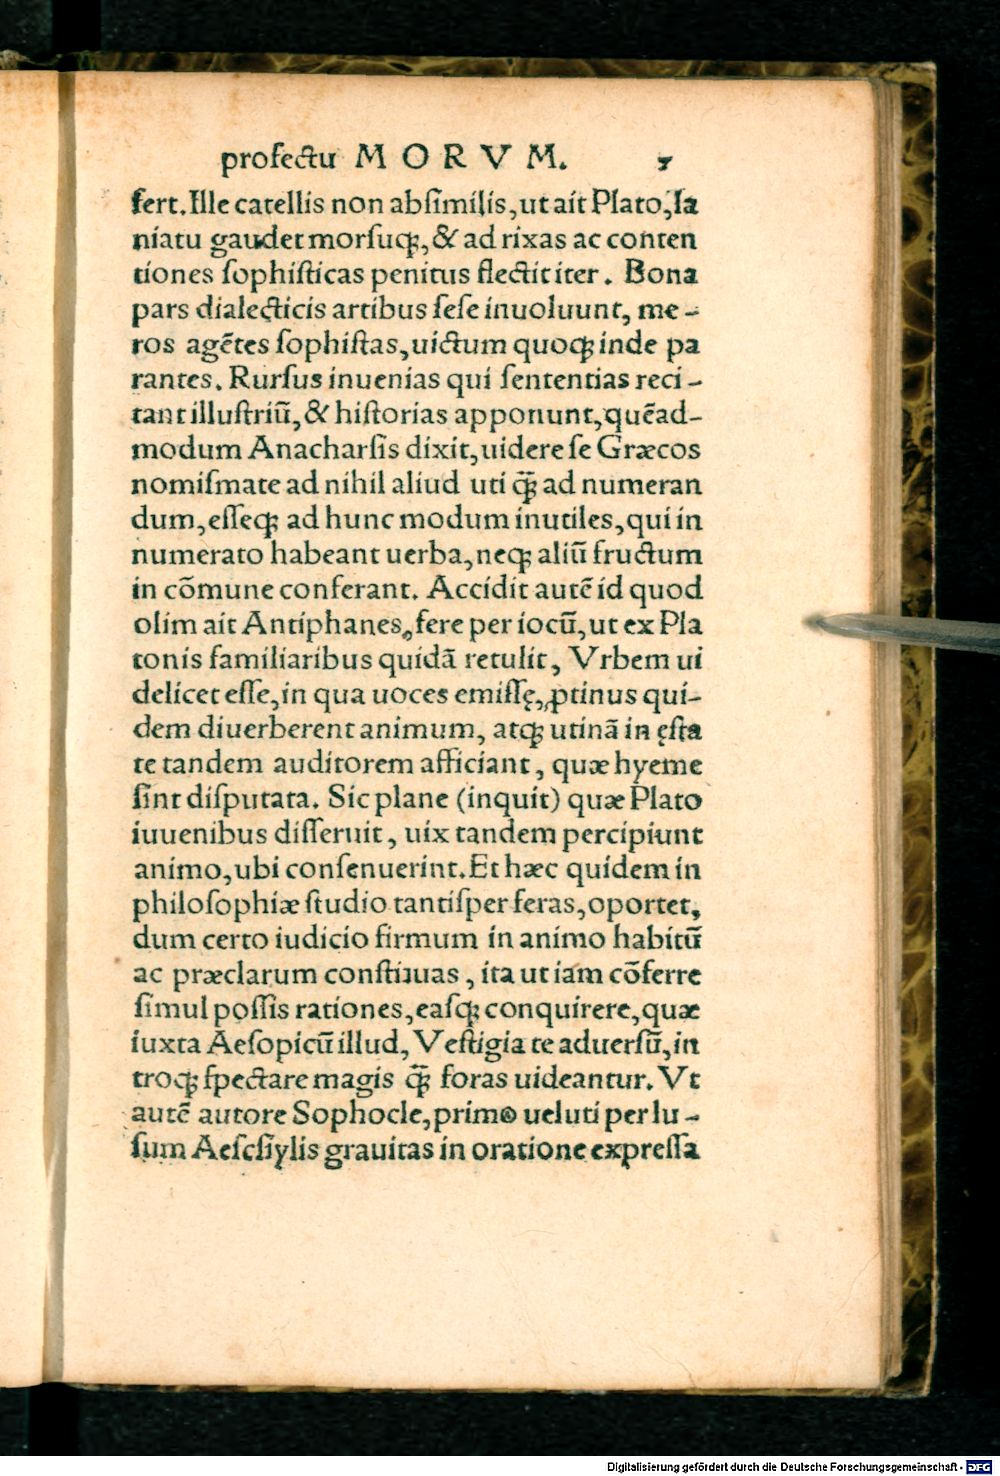 profectu MORVM. 7
fert. Ille catellis non absimilis, ut ait Plato, la
niatu gaudet morsuq;, & ad rixas ac conten
tiones sophisticas penitus flectit iter. Bona
pars dialecticis artibus sese inuoluunt, me-
ros agẽtes sophistas, uictum quoq; inde pa
rantes. Rursus inuenias qui sententias reci-
tant illustriũ, & historias apponunt, quẽad-
modum Anacharsis dixit, uidere se Græcos
nomismate ad nihil aliud uti q̃ȝ ad numeran
dum, esseq; ad hunc modum inutiles, qui in
numerato habeant uerba, neq; aliũ fructum
in cõmune conferant. Accidit autẽ id quod
olim ait Antiphanes, fere per iocũ, ut ex Pla
tonis familiaribus quidã retulit, Vrbem ui
delicet esse, in qua uoces emissę, ꝓtinus qui-
dem diuerberent animum, atq; utinã in ęsta
te tandem auditorem afficiant, quæ hyeme
sint disputata. Sic plane (inquit) quæ Plato
iuuenibus disseruit, uix tandem percipiunt
animo, ubi consenuerint. Et hæc quidem in
philosophiæ studio tantisper feras, oportet,
dum certo iudicio firmum in animo habitũ
ac præclarum constituas, ita ut iam cõferre
simul possis rationes, easq; conquirere, quæ
iuxta Aesopicũ illud, Vestigia te aduersũ, in
troq; spectare magis q̃ȝ foras uideantur. Vt
autẽ autore Sophocle, primo ueluti per lu-
sum Aescsiylis grauitas in oratione expressa
Digitalisierung gefördert durch die Deutsche Forschungsgemeinschaft - DFG